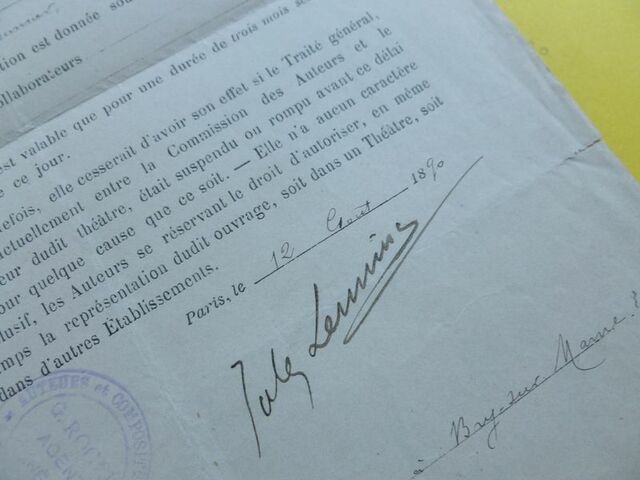 tion est donnée sous
llaborateurs
est valable que pour une durée de trois mois se
e ce jour.
efois, elle cesserait d'avoir son effet si le Traité général,
ctuellement entre la Commission des Auteurs et le
eur dudit théâtre, était suspendu ou rompu avant ce délai
our quelque cause que ce soit. — Elle n'a aucun caractère
lusif, les Auteurs se réservant le droit d'autoriser, en même
emps la représentation dudit ouvrage, soit dans un Théâtre, soit
dans d'autres Établissements.
Paris, le 12 Août 1890
Jules Lermina
à Bry-sur Marne
* AUTEURS et COMPOSIT
G. ROG
AGEN